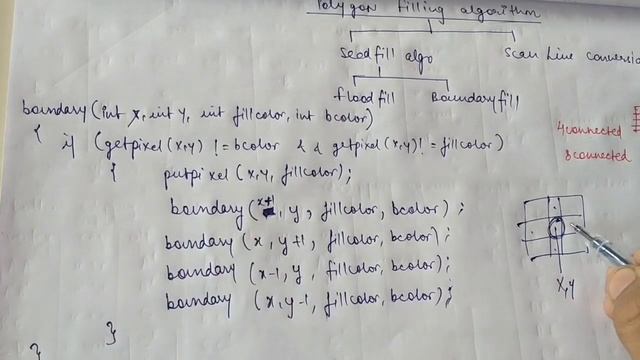 Polygon filling algorithm
Seedfill algo
Scan Line conversio
floodfill
Boundaryfill
boundary(int x, int y, int fillcolor, int bcolor)
{ if (getpixel(x,y) != bcolor && getpixel(x,y)! = fillcolor)
4connected
{ putpixel(x,y, fillcolor);
8connected
boundary(x+1, y, fillcolor, bcolor);
boundary (x, y+1, fillcolor, bcolor);
boundary (x-1, y, fillcolor, bcolor);
boundary (x, y-1, fillcolor, bcolor);
x,y
}
}